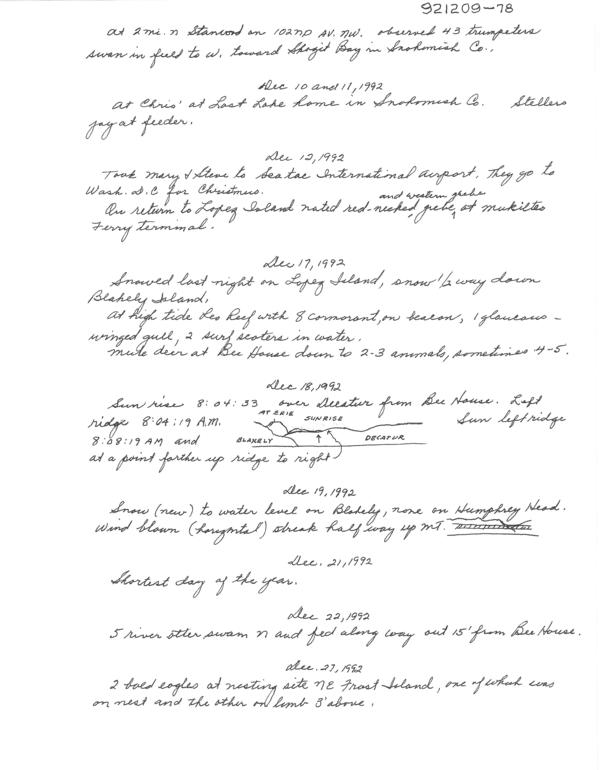 921209-78
at 2 mi. n Stanwood on 102ND AV. NW. observed 43 trumpeters
swan in field to W. toward Skagit Bay in Snohomish Co..
Dec 10 and 11, 1992
at Chris' at Lost Lake home in Snohomish Co. Stellers
jay at feeder.
Dec 12, 1992
Took Mary & Steve to Seatac International airport. They go to
Wash. D.C for Christmas.
and western grebe
On return to Lopez Island noted red-necked grebe, at mukilteo
Ferry terminal.
Dec 17, 1992
Snowed last night on Lopez Island, snow 1/2 way down
Blakely Island,
at high tide Leo Reef with 8 cormorant, on beacon, 1 glaucous-
winged gull, 2 surf scoters in water.
mule deer at Bee House down to 2-3 animals, sometimes 4-5.
Dec 18, 1992
Sun rise 8:04:33 over Decatur from Bee House. Left
ridge 8:04:19 A.M. Sun left ridge
MT ERIE SUNRISE
8:08:19 AM and BLAKELY DECATUR
at a point farther up ridge to right
Dec 19, 1992
Snow (new) to water level on Blakely, none on Humphrey Head.
Wind blown (horizontal) streak half way up MT.
Dec. 21, 1992
Shortest day of the year.
Dec 22, 1992
5 river otter swam n and fed along way out 15' from Bee House.
Dec. 27, 1992
2 bald eagles at nesting site NE Frost Island, one of which was
on nest and the other on limb 3' above.